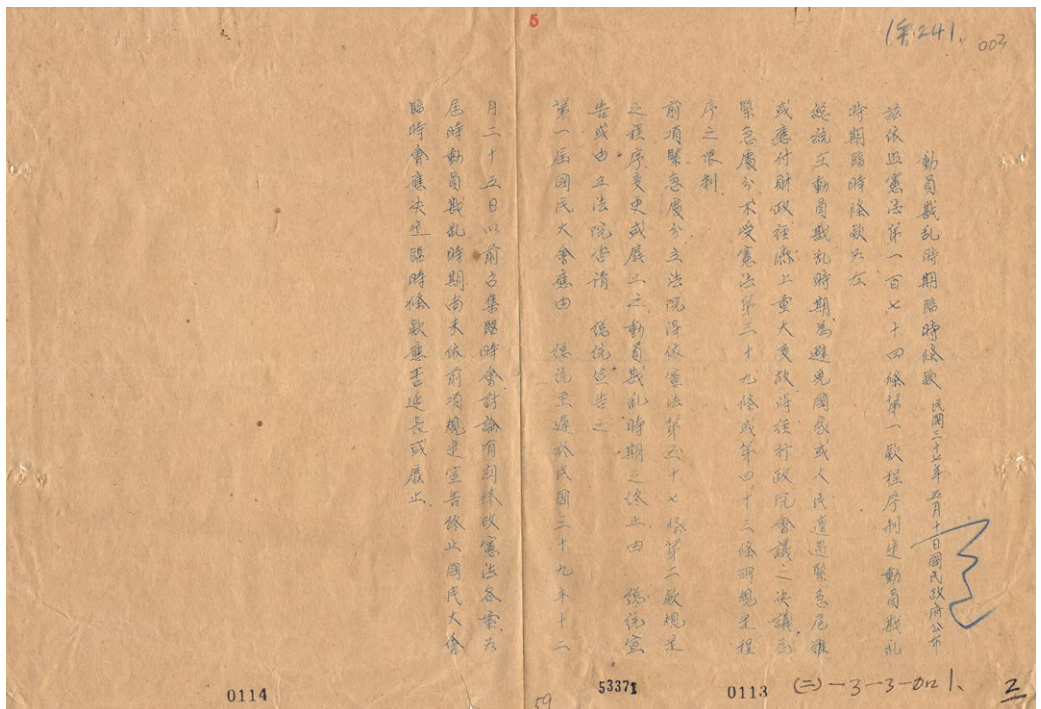 5
1年241.
003
動員戡乱時期臨時條款 民國三十七年五月十日國民政府公布
茲依照憲法第一百七十四條第一款程序制定動員戡乱
時期臨時條款如左
總統在動員戡乱時期為避免國家或人民遭遇緊急危難
或應付財政経濟上重大变故得経行政院會議之決議為
緊急處分不受憲法第三十九條或第四十三條所規定程
序之限制
前項緊急處分立法院得依憲法第五十七條第二款規定
之程序变更或廢止之動員戡乱時期之終止由 總統宣
告或由立法院咨請 總統宣告之
第一屆國民大會應由 總統至遲於民國三十九年十二
月二十五日以前召集臨時會討論有関修改憲法各案如
屆時動員戡乱時期尚未依前項規定宣告終止國民大會
臨時會應決定臨時條款應否延長或廢止
0114
59
53371
0113
(二)-3-3-
2